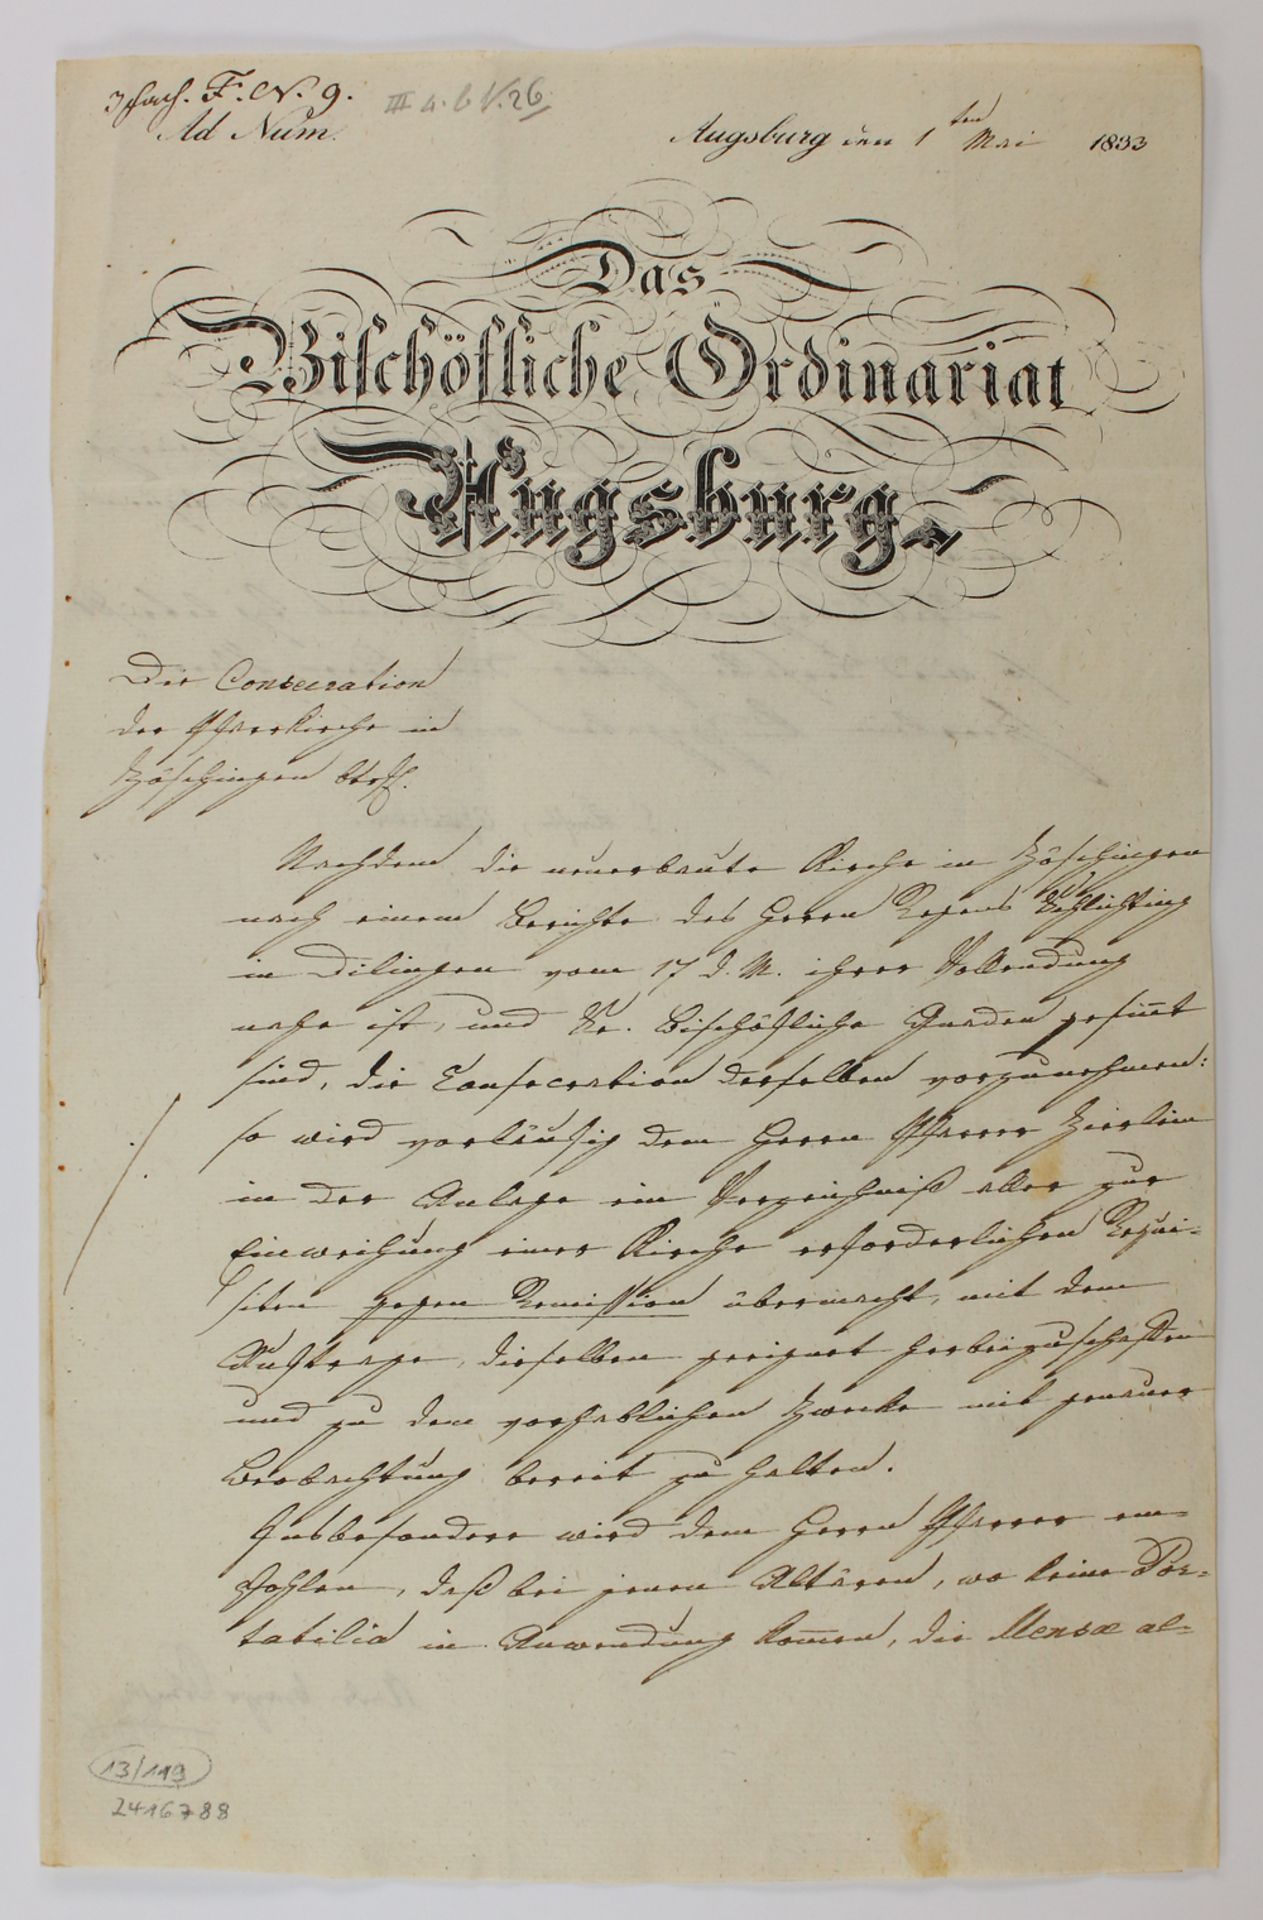 3fach. F. N. 9.
III 4. b N. 26.
Ad Num.
Augsburg den 1ten Mai 1833
Das
Bischöfliche Ordinariat
Augsburg.
Die Consecration
der Pfarrkirche in
Zöschingen betrf.
Nachdem die neuerbaute Kirche in Zöschingen
nach einem Berichte des Herrn Regens Schlichting
in Dilingen vom 17 d. M. ihrer Vollendung
nahe ist, und Se. Bischöfliche Gnaden gesiñt
sind, die Consecration derselben vorzunehmen:
so wird vorläufig dem Herrn Pfarrer Zierlein
in der Anlage ein Verzeichniß aller zur
Einweihung einer Kirche erforderlichen Requi=
siten gegen Remission übermacht, mit dem
Auftrage, dieselben geeignet herbeizuschaffen
und zu dem vorhablichen Zwecke mit genauer
Beobachtung bereit zu halten.
Insbesondere wird dem Herrn Pfarrer em=
pfohlen, daß bei jenen Altären, wo keine Por=
tatilia in Anwendung kom̄en, die Mensæ al=
13/119
2416788